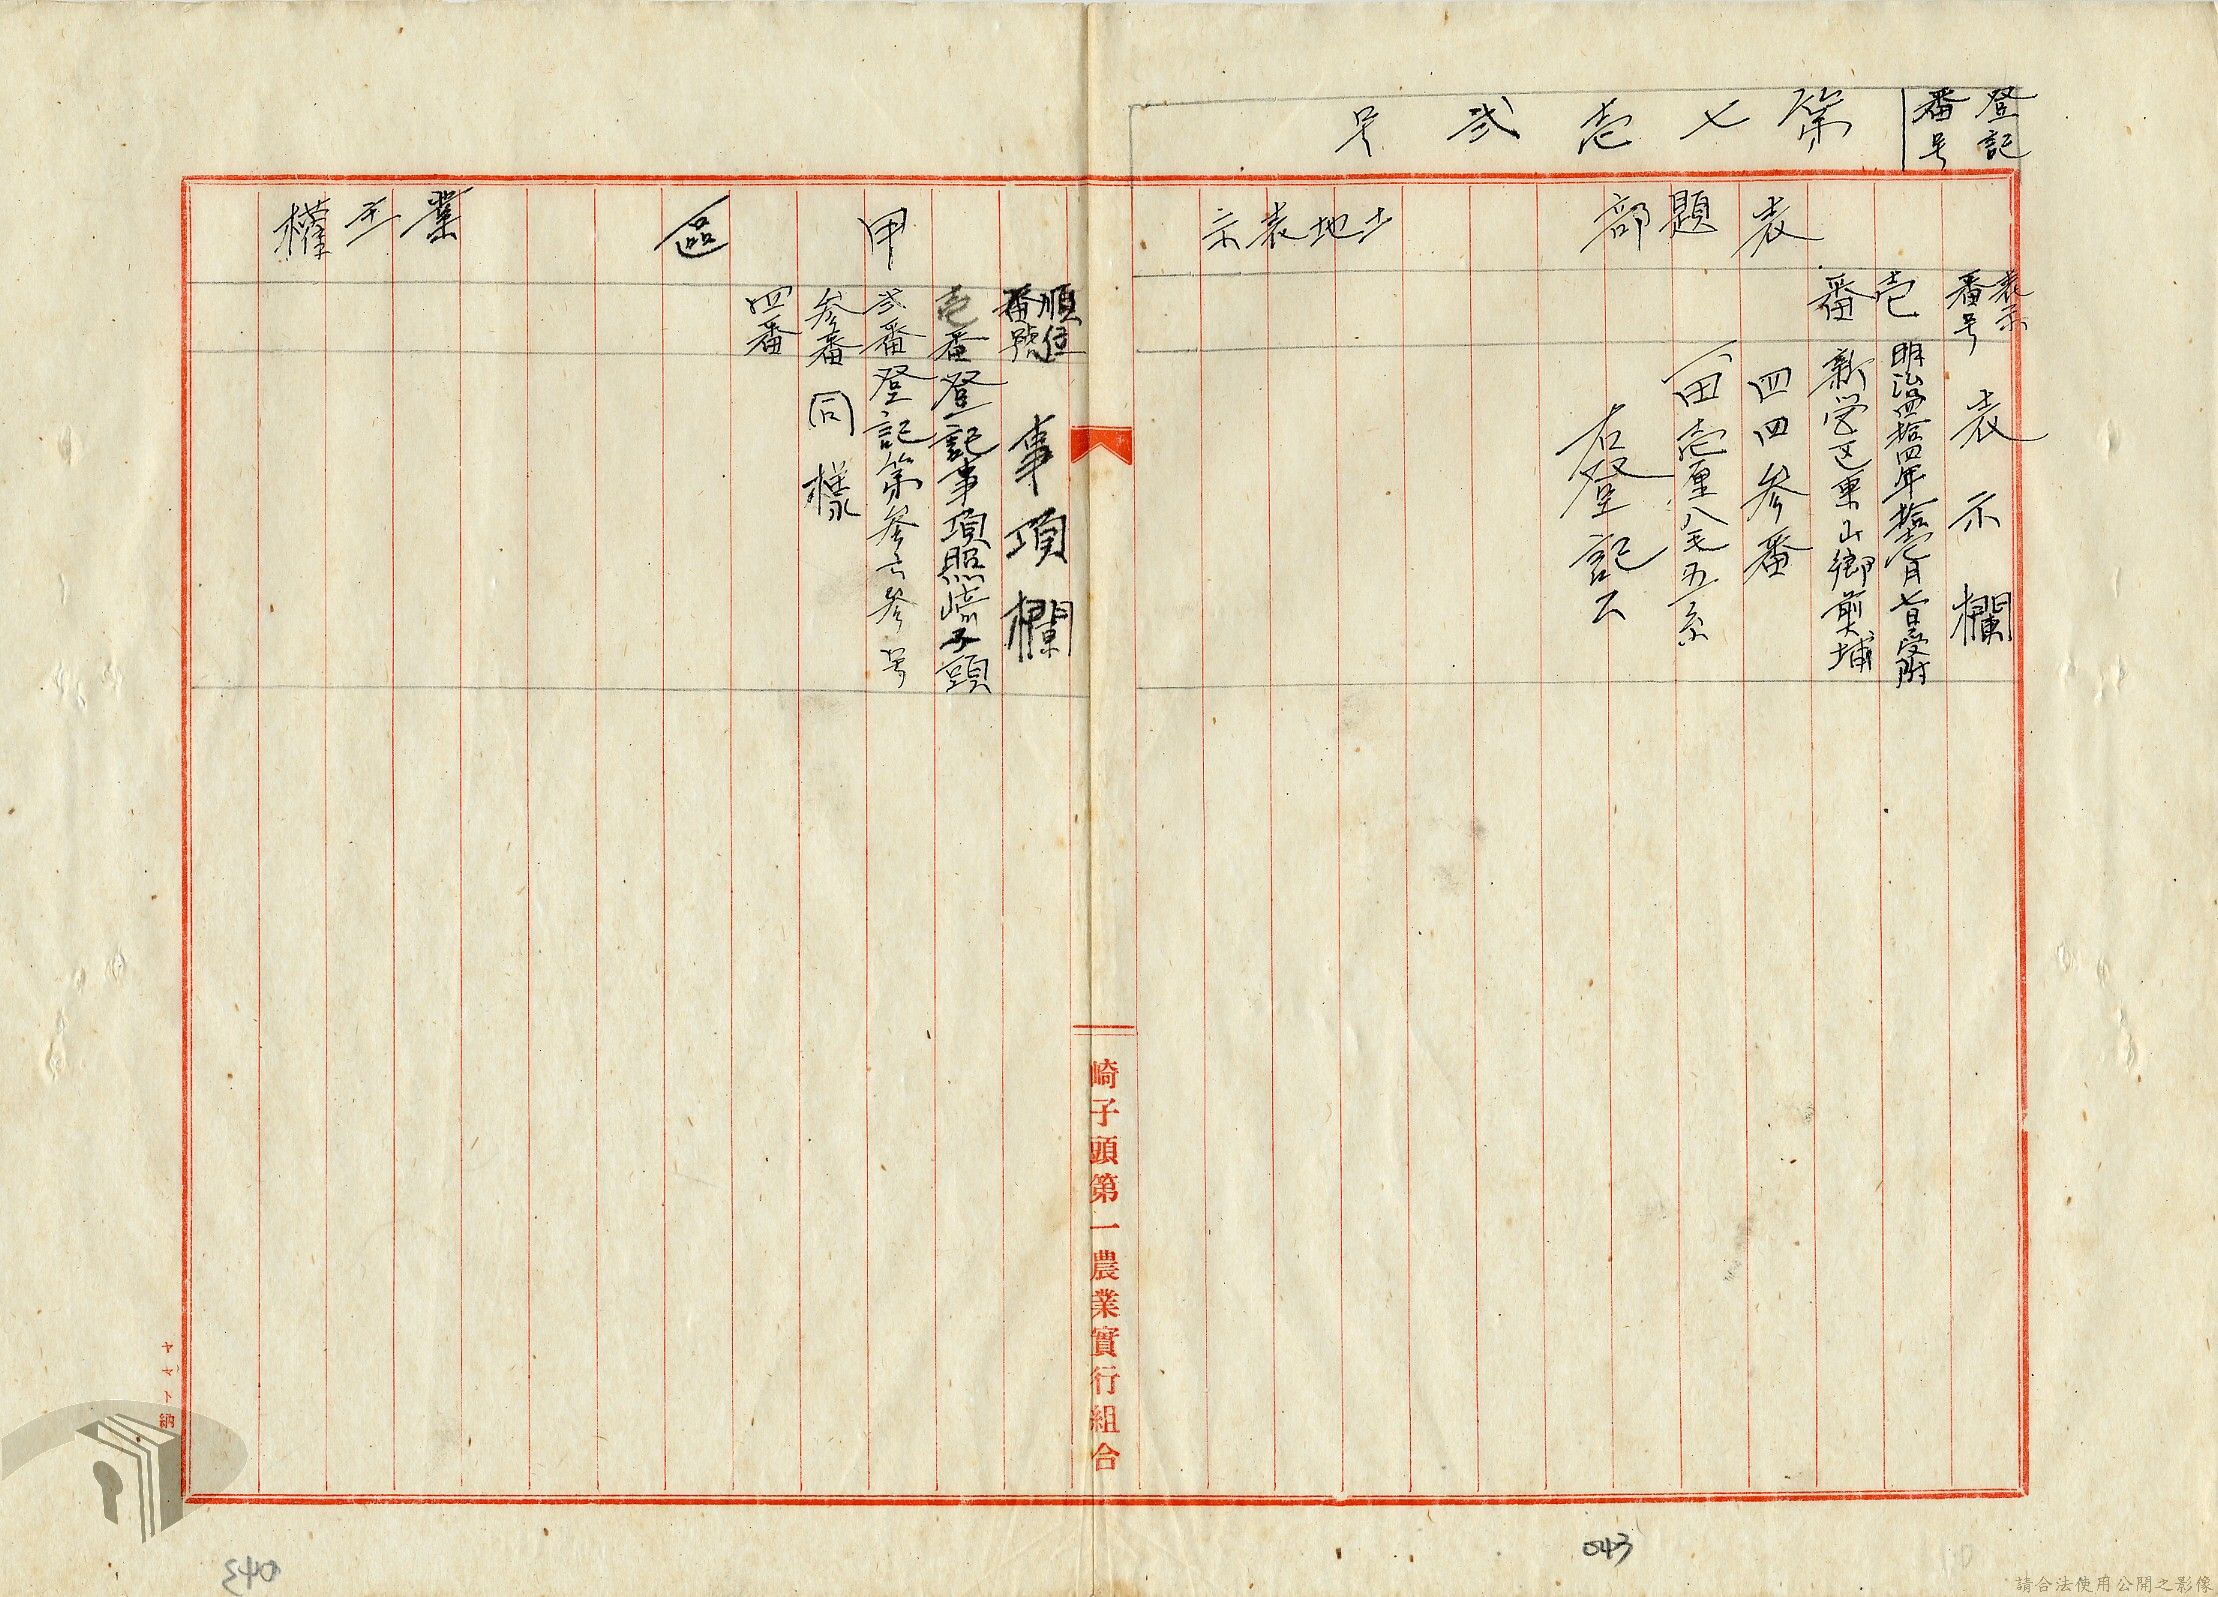 登記
番号
第七壱弐号
表題部
土地表示
表示
番号
表示欄
壱
番
明治四拾四年拾壱月七日受附
新学区東山郷前埔
四四参番
一、田壱厘八毛五糸
右登記ス
甲區
業主權
順位
番號
事項欄
壱番
登記事項照崎子頭
弐番
登記第参六参号
参番
同樣
四番
崎子頭第一農業實行組合
ヤマト納
043
043
請合法使用公開之影像